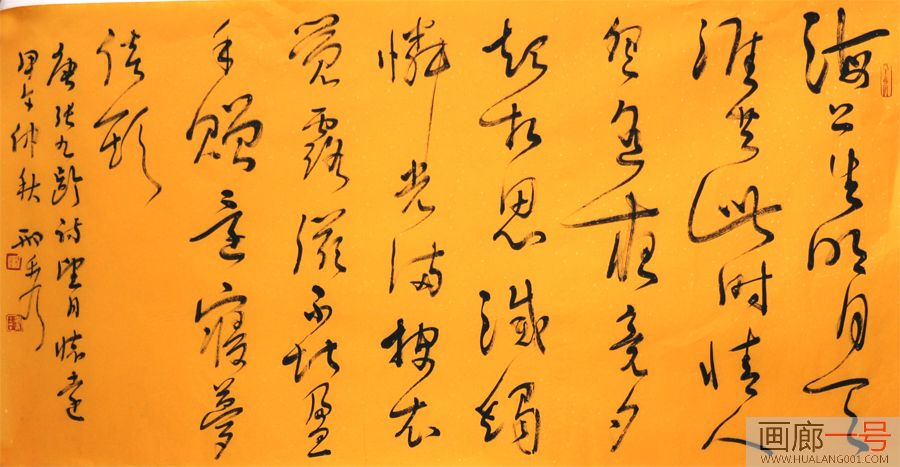 海上生明月天
涯共此时情人
怨遥夜竟夕
起相思滅燭
憐光满披衣
覺露滋不堪盈
手贈還寢夢
佳期
唐張九齡詩望月懷遠
甲午仲秋
画廊一号
WWW.HUALANG001.COM